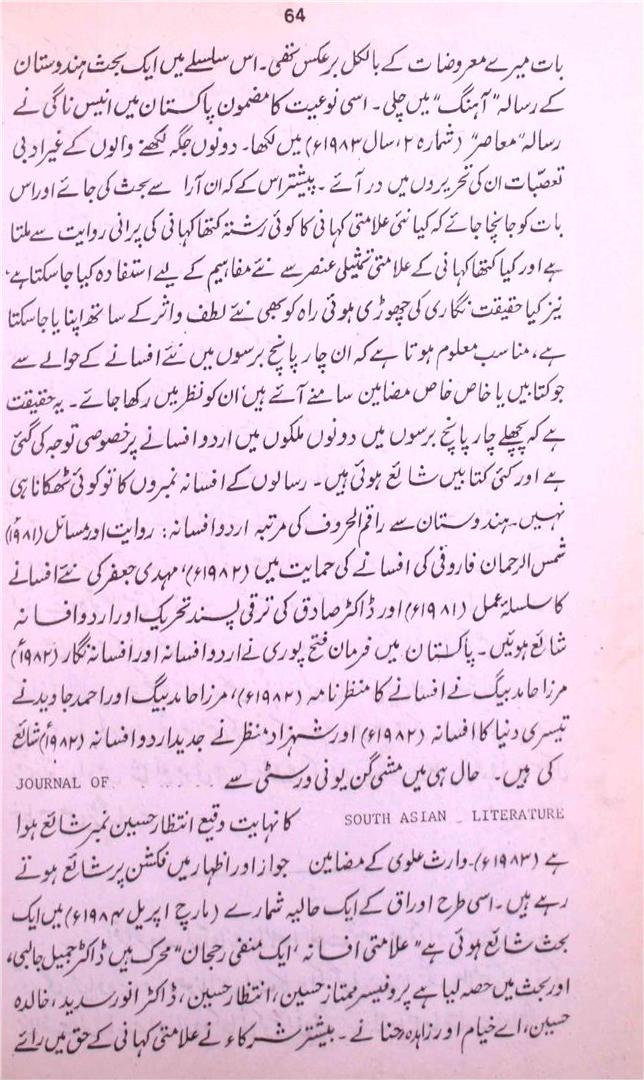 64
بات میرے معروضات کے بالکل برعکس تھی۔ اس سلسلے میں ایک بحث ہندوستان
کے رسالہ "آہنگ" میں چلی۔ اسی نوعیت کا مضمون پاکستان میں انیس ناگی نے
رسالہ "معاصر" (شمارہ ۲، سال ۱۹۸۳ء) میں لکھا۔ دونوں جگہ لکھنے والوں کے غیر ادبی
تعصّبات ان کی تحریروں میں در آئے۔ پیشتر اس کے کہ ان آرا سے بحث کی جائے اور اس
بات کو جانچا جائے کہ کیا نئی علامتی کہانی کا کوئی رشتہ کتھا کہانی کی پرانی روایت سے ملتا
ہے اور کیا کتھا کہانی کے علامتی تمثیلی عنصر سے نئے مفاہیم کے لیے استفادہ کیا جا سکتا ہے،
نیز کیا حقیقت نگاری کی چھوڑی ہوئی راہ کو بھی نئے لطف و اثر کے ساتھ اپنایا جا سکتا
ہے، مناسب معلوم ہوتا ہے کہ ان چار پانچ برسوں میں نئے افسانے کے حوالے سے
جو کتابیں یا خاص خاص مضامین سامنے آئے ہیں، ان کو نظر میں رکھا جائے۔ یہ حقیقت
ہے کہ پچھلے چار پانچ برسوں میں دونوں ملکوں میں اردو افسانے پر خصوصی توجہ کی گئی
ہے اور کئی کتابیں شائع ہوئی ہیں۔ رسالوں کے افسانہ نمبروں کا تو کوئی ٹھکانا ہی
نہیں۔ ہندوستان سے راقم الحروف کی مرتبہ اردو افسانہ: روایت اور مسائل (۱۹۸۱ء)
شمس الرحمان فاروقی کی افسانے کی حمایت میں (۱۹۸۲ء)، مہدی جعفر کی نئے افسانے
کا سلسلۂ عمل (۱۹۸۱ء) اور ڈاکٹر صادق کی ترقی پسند تحریک اور اردو افسانہ
شائع ہوئیں۔ پاکستان میں فرمان فتح پوری نے اردو افسانہ اور افسانہ نگار (۱۹۸۲ء)
مرزا حامد بیگ نے افسانے کا منظر نامہ (۱۹۸۲ء)، مرزا حامد بیگ اور احمد جاوید نے
تیسری دنیا کا افسانہ (۱۹۸۲ء) اور شہزاد منظر نے جدید اردو افسانہ (۱۹۸۲ء) شائع
کی ہیں۔ حال ہی میں مشی گن یونی ورسٹی سے ....... JOURNAL OF
SOUTH ASIAN LITERATURE کا نہایت وقیع انتظار حسین نمبر شائع ہوا
ہے (۱۹۸۳ء)۔ وارث علوی کے مضامین جواز اور اظہار میں فکشن پر شائع ہوتے
رہے ہیں۔ اسی طرح اوراق کے ایک حالیہ شمارے (مارچ اپریل ۱۹۸۴ء) میں ایک
بحث شائع ہوئی ہے "علامتی افسانہ، ایک منفی رجحان" محرک ہیں ڈاکٹر جمیل جالبی،
اور بحث میں حصہ لیا ہے پروفیسر ممتاز حسین، انتظار حسین، ڈاکٹر انور سدید، خالدہ
حسین، اے خیام اور زاہدہ حنا نے۔ بیشتر شرکاء نے علامتی کہانی کے حق میں رائے